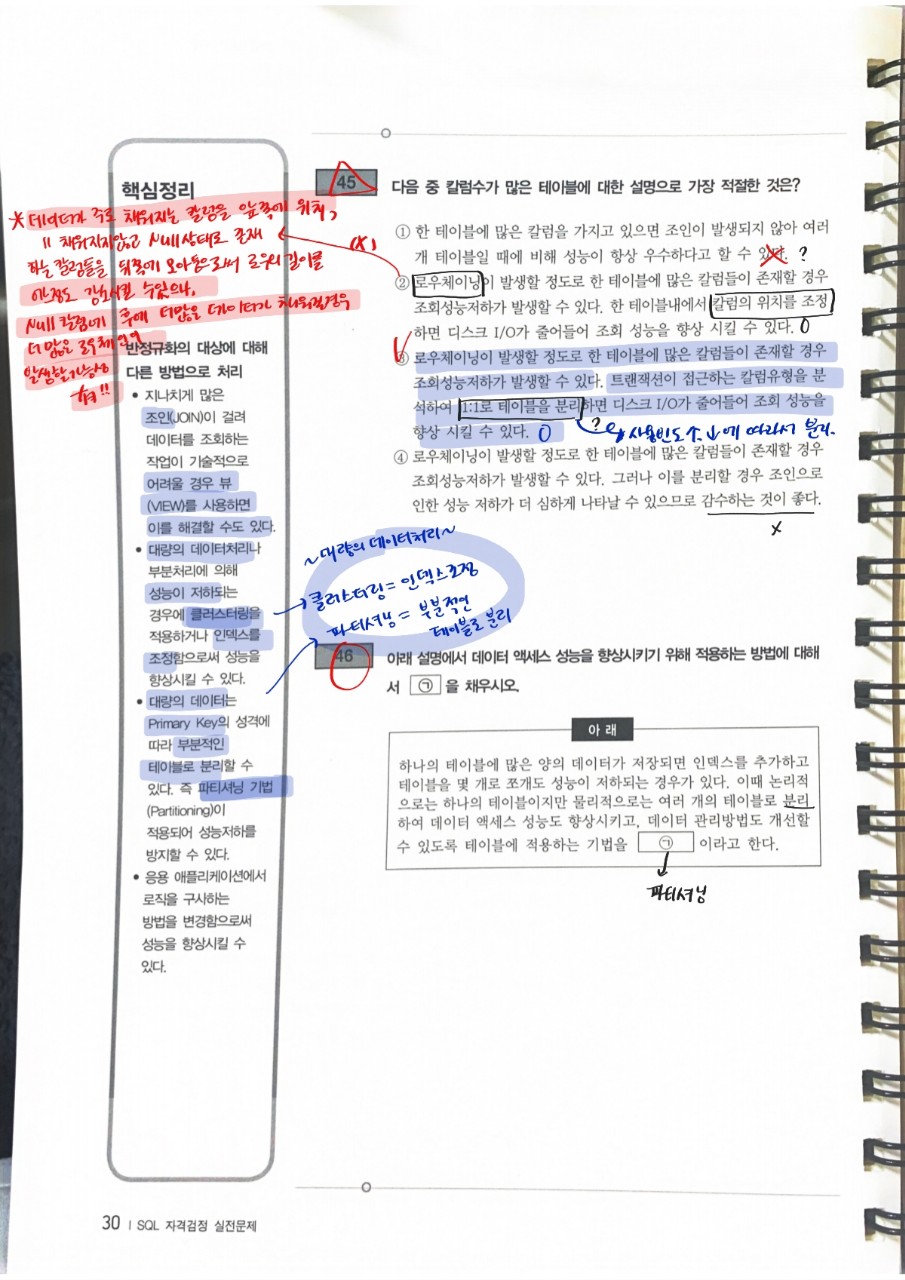 핵심정리
* 데이터가 주로 채워지는 칼럼을 앞쪽에 위치,
〃 채워지지않고 Null상태로 존재
하는 칼럼들을 뒤쪽에 모아둠으로써 로우의 길이를
어느정도 감소시킬 수있으나,
Null 칼럼에 후에 더많은 데이터가 채워질경우
더 많은 로우체이닝
발생할가능성
有!!
(X)
반정규화의 대상에 대해
다른 방법으로 처리
• 지나치게 많은
조인(JOIN)이 걸려
데이터를 조회하는
작업이 기술적으로
어려울 경우 뷰
(VIEW)를 사용하면
이를 해결할 수도 있다.
• 대량의 데이터처리나
부분처리에 의해
성능이 저하되는
경우에 클러스터링을
적용하거나 인덱스를
조정함으로써 성능을
향상시킬 수 있다.
• 대량의 데이터는
Primary Key의 성격에
따라 부분적인
테이블로 분리할 수
있다. 즉 파티셔닝 기법
(Partitioning)이
적용되어 성능저하를
방지할 수 있다.
• 응용 애플리케이션에서
로직을 구사하는
방법을 변경함으로써
성능을 향상시킬 수
있다.
45 다음 중 칼럼수가 많은 테이블에 대한 설명으로 가장 적절한 것은?
① 한 테이블에 많은 칼럼을 가지고 있으면 조인이 발생되지 않아 여러
개 테이블일 때에 비해 성능이 항상 우수하다고 할 수 있다. ?
② 로우체이닝이 발생할 정도로 한 테이블에 많은 칼럼들이 존재할 경우
조회성능저하가 발생할 수 있다. 한 테이블내에서 칼럼의 위치를 조정
하면 디스크 I/O가 줄어들어 조회 성능을 향상 시킬 수 있다. O
③ 로우체이닝이 발생할 정도로 한 테이블에 많은 칼럼들이 존재할 경우
조회성능저하가 발생할 수 있다. 트랜잭션이 접근하는 칼럼유형을 분
석하여 1:1로 테이블을 분리하면 디스크 I/O가 줄어들어 조회 성능을
향상 시킬 수 있다. O ? 사용빈도 ↑, ↓에 따라서 분리.
④ 로우체이닝이 발생할 정도로 한 테이블에 많은 칼럼들이 존재할 경우
조회성능저하가 발생할 수 있다. 그러나 이를 분리할 경우 조인으로
인한 성능 저하가 더 심하게 나타날 수 있으므로 감수하는 것이 좋다.
X
~대량의 데이터처리~
클러스터링 = 인덱스조정
파티셔닝 = 부분적인
테이블로 분리
46 아래 설명에서 데이터 액세스 성능을 향상시키기 위해 적용하는 방법에 대해
서 ㉠ 을 채우시오.
아 래
하나의 테이블에 많은 양의 데이터가 저장되면 인덱스를 추가하고
테이블을 몇 개로 쪼개도 성능이 저하되는 경우가 있다. 이때 논리적
으로는 하나의 테이블이지만 물리적으로는 여러 개의 테이블로 분리
하여 데이터 액세스 성능도 향상시키고, 데이터 관리방법도 개선할
수 있도록 테이블에 적용하는 기법을 ㉠ 이라고 한다.
파티셔닝
30 | SQL 자격검정 실전문제